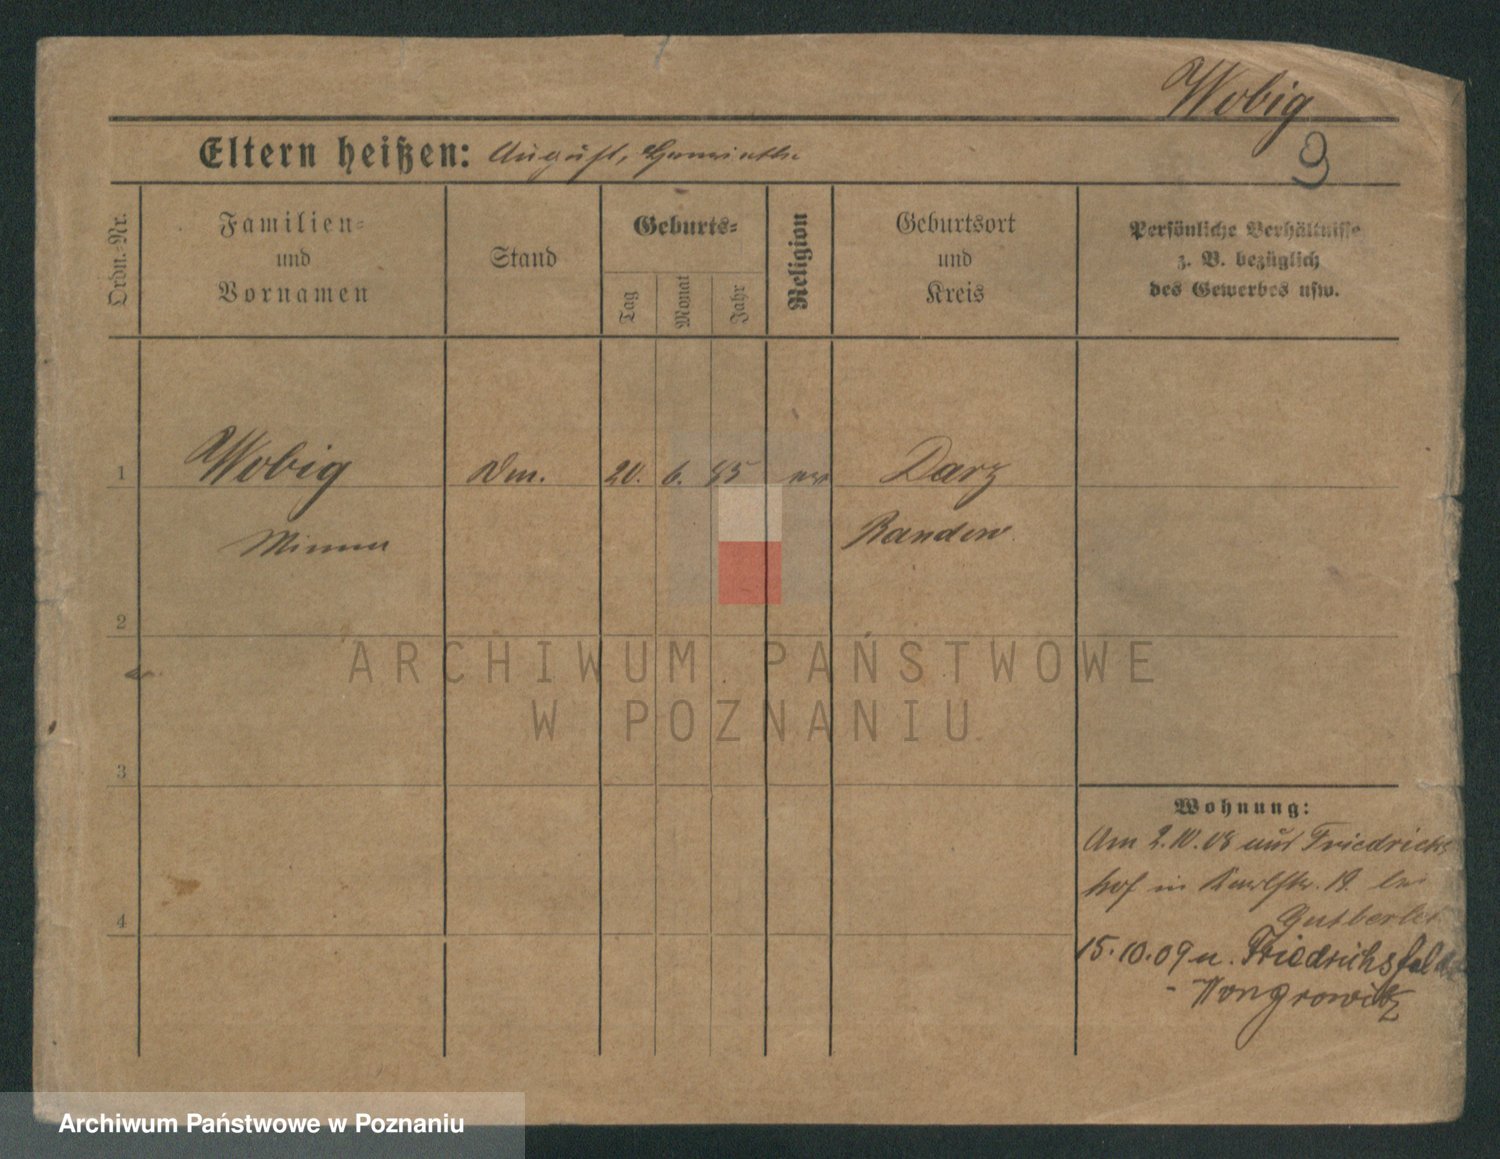 Wobig
9
Eltern heißen: August, Henriette
Ordn.-Nr.
Familien-
und
Vornamen
Stand
Geburts-
Tag
Monat
Jahr
Religion
Geburtsort
und
Kreis
Persönliche Verhältnisse
z. B. bezüglich
des Gewerbes usw.
1 Wobig 20. 6. 85 ev Darz
Minna Randow
2
3
4
Wohnung:
Am 2.10.08 aus Friedrichs
hof in Karlstr. 19. bei
Gutberlet
15.10.09 n. Friedrichsfelde
- Wongrowitz
ARCHIWUM PAŃSTWOWE
W POZNANIU
Archiwum Państwowe w Poznaniu